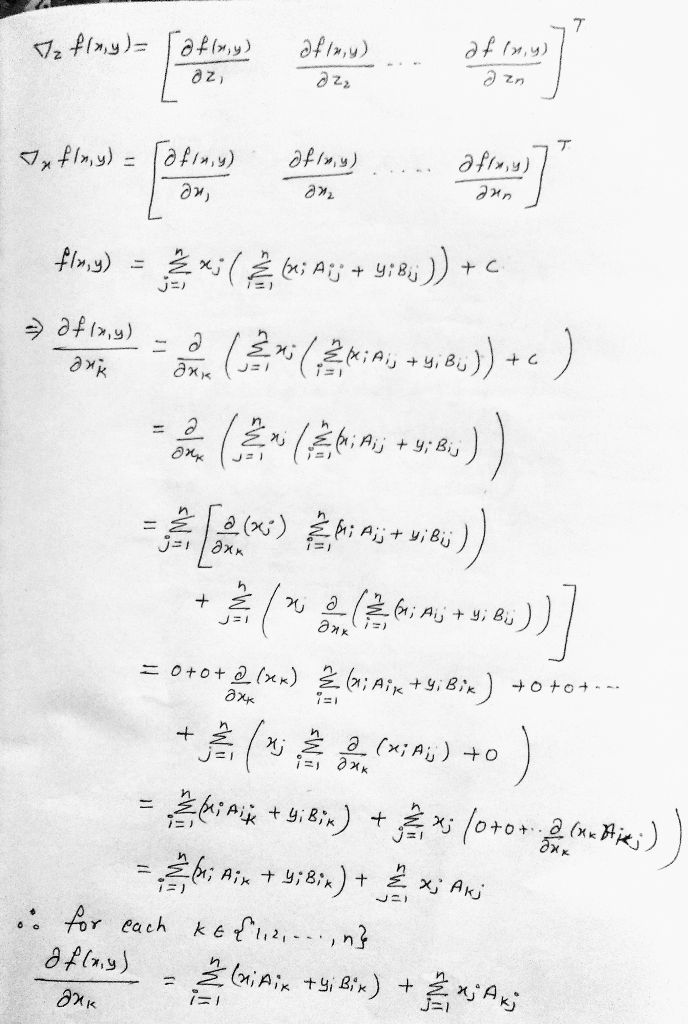 ∇z f(x,y) = [∂f(x,y)/∂z₁ ∂f(x,y)/∂z₂ ... ∂f(x,y)/∂zn]ᵀ
∇x f(x,y) = [∂f(x,y)/∂x₁ ∂f(x,y)/∂x₂ ..... ∂f(x,y)/∂xn]ᵀ
f(x,y) = Σ_{j=1}^{n} xj (Σ_{i=1}^{n} (xi Aij + yi Bij)) + c
⇒ ∂f(x,y)/∂xk = ∂/∂xk (Σ_{j=1}^{n} xj (Σ_{i=1}^{n} (xi Aij + yi Bij)) + c)
= ∂/∂xk (Σ_{j=1}^{n} xj (Σ_{i=1}^{n} (xi Aij + yi Bij)))
= Σ_{j=1}^{n} [∂/∂xk (xj) Σ_{i=1}^{n} (xi Aij + yi Bij))
+ Σ_{j=1}^{n} (xj ∂/∂xk (Σ_{i=1}^{n} (xi Aij + yi Bij)))]
= 0+0+ ∂/∂xk (xk) Σ_{i=1}^{n} (xi Aik + yi Bik) +0+0+...
+ Σ_{j=1}^{n} (xj Σ_{i=1}^{n} ∂/∂xk (xi Aij) + 0)
= Σ_{i=1}^{n} (xi Aik + yi Bik) + Σ_{j=1}^{n} xj (0+0+.. ∂/∂xk (xk Akj))
= Σ_{i=1}^{n} (xi Aik + yi Bik) + Σ_{j=1}^{n} xj Akj
∴ for each k ∈ {1,2,---,n}
∂f(x,y)/∂xk = Σ_{i=1}^{n} (xi Aik + yi Bik) + Σ_{j=1}^{n} xj Akj